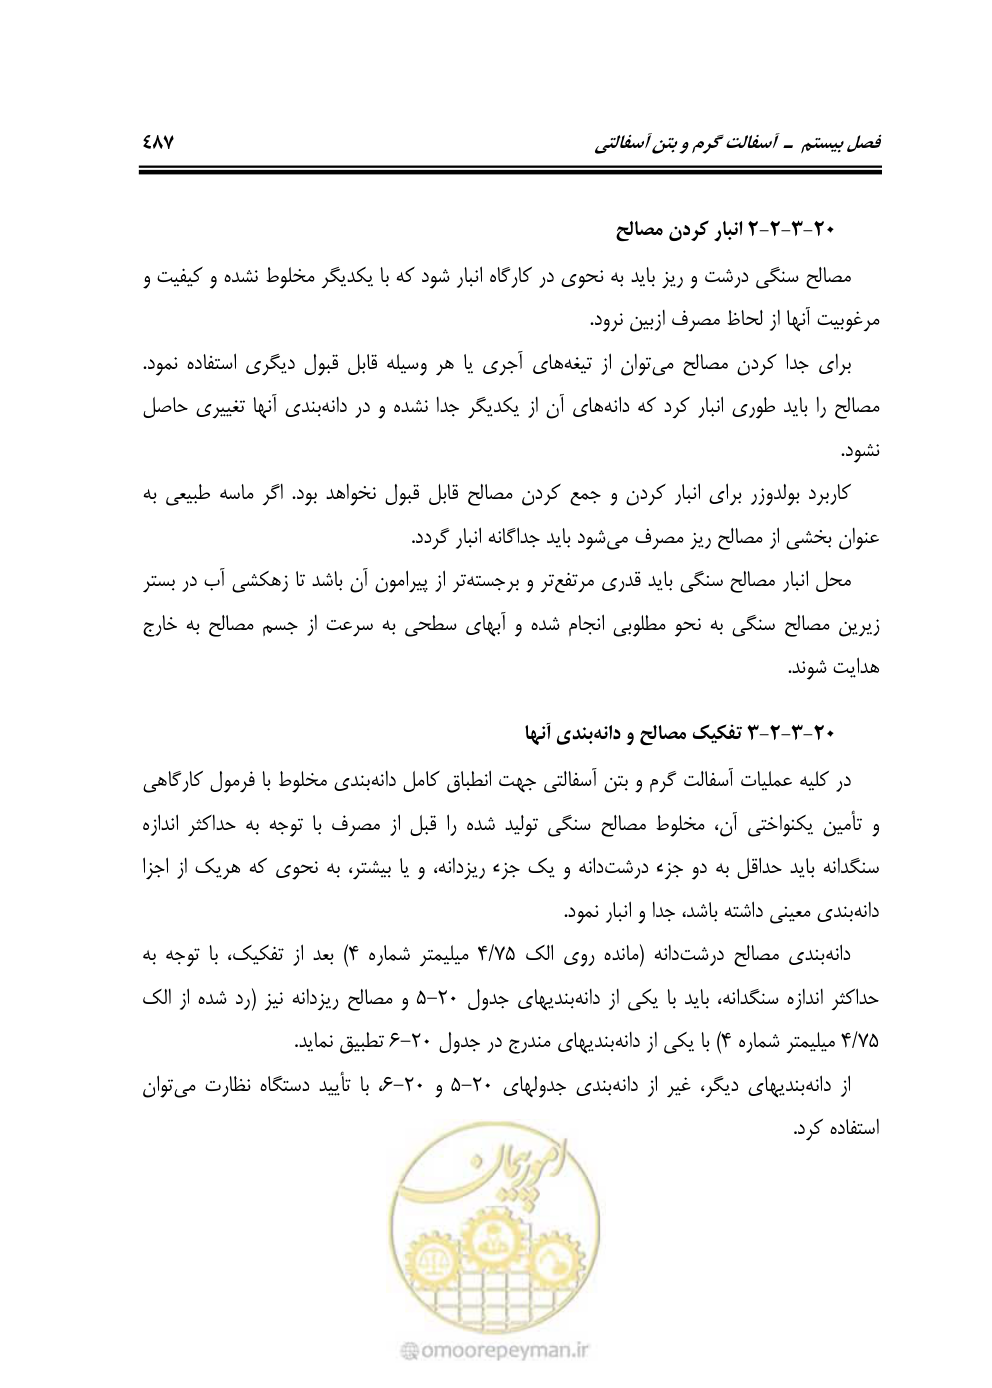 فصل بیستم – آسفالت گرم و بتن آسفالتی ٤٨٧
۲۰-۳-۲-۲ انبار کردن مصالح
مصالح سنگی درشت و ریز باید به نحوی در کارگاه انبار شود که با یکدیگر مخلوط نشده و کیفیت و
مرغوبیت آنها از لحاظ مصرف ازبین نرود.
برای جدا کردن مصالح می‌توان از تیغه‌های آجری یا هر وسیله قابل قبول دیگری استفاده نمود.
مصالح را باید طوری انبار کرد که دانه‌های آن از یکدیگر جدا نشده و در دانه‌بندی آنها تغییری حاصل
نشود.
کاربرد بولدوزر برای انبار کردن و جمع کردن مصالح قابل قبول نخواهد بود. اگر ماسه طبیعی به
عنوان بخشی از مصالح ریز مصرف می‌شود باید جداگانه انبار گردد.
محل انبار مصالح سنگی باید قدری مرتفع‌تر و برجسته‌تر از پیرامون آن باشد تا زهکشی آب در بستر
زیرین مصالح سنگی به نحو مطلوبی انجام شده و آبهای سطحی به سرعت از جسم مصالح به خارج
هدایت شوند.
۲۰-۳-۲-۳ تفکیک مصالح و دانه‌بندی آنها
در کلیه عملیات آسفالت گرم و بتن آسفالتی جهت انطباق کامل دانه‌بندی مخلوط با فرمول کارگاهی
و تأمین یکنواختی آن، مخلوط مصالح سنگی تولید شده را قبل از مصرف با توجه به حداکثر اندازه
سنگدانه باید حداقل به دو جزء درشت‌دانه و یک جزء ریزدانه، و یا بیشتر، به نحوی که هریک از اجزا
دانه‌بندی معینی داشته باشد، جدا و انبار نمود.
دانه‌بندی مصالح درشت‌دانه (مانده روی الک ۴/۷۵ میلیمتر شماره ۴) بعد از تفکیک، با توجه به
حداکثر اندازه سنگدانه، باید با یکی از دانه‌بندیهای جدول ۲۰-۵ و مصالح ریزدانه نیز (رد شده از الک
۴/۷۵ میلیمتر شماره ۴) با یکی از دانه‌بندیهای مندرج در جدول ۲۰-۶ تطبیق نماید.
از دانه‌بندیهای دیگر، غیر از دانه‌بندی جدولهای ۲۰-۵ و ۲۰-۶، با تأیید دستگاه نظارت می‌توان
استفاده کرد.
امور پیمان
@omoorepeyman.ir